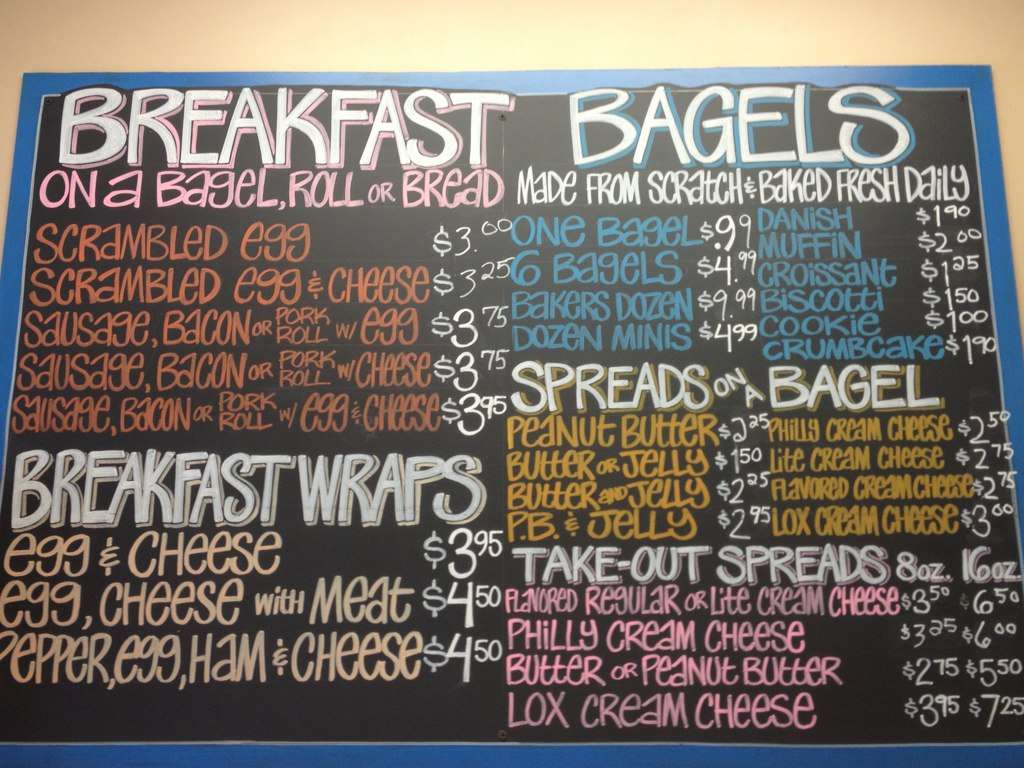 BREAKFAST
ON a BAGEL, ROLL OR BREAD
SCRAMBLED egg $3.00
SCRAMBLED egg & CHEESE $3.25
SAUSAGE, BACON OR PORK ROLL W/ egg $3.75
SAUSAGE, BACON OR PORK ROLL W/ CHEESE $3.75
SAUSAGE, BACON OR PORK ROLL W/ egg & CHEESE $3.95
BREAKFAST WRAPS
egg & CHEESE $3.95
egg, CHEESE WITH MEAT $4.50
PEPPER, egg, HAM & CHEESE $4.50
BAGELS
MADE FROM SCRATCH & BAKED FRESH DAILY
ONE BAGEL $.99
6 BAGELS $4.99
BAKERS DOZEN $9.99
DOZEN MINIS $4.99
DANISH $1.90
MUFFIN $2.00
CROISSANT $1.25
BISCOTTI $1.50
COOKIE $1.00
CRUMBCAKE $1.90
SPREADS ON A BAGEL
PEANUT BUTTER $2.25
BUTTER OR JELLY $1.50
BUTTER AND JELLY $2.25
P.B. & JELLY $2.95
PHILLY CREAM CHEESE $2.50
LITE CREAM CHEESE $2.75
FLAVORED CREAM CHEESE $2.75
LOX CREAM CHEESE $3.00
TAKE-OUT SPREADS 8oz. 16oz.
FLAVORED REGULAR OR LITE CREAM CHEESE $3.50 $6.50
PHILLY CREAM CHEESE $3.25 $6.00
BUTTER OR PEANUT BUTTER $2.75 $5.50
LOX CREAM CHEESE $3.95 $7.25